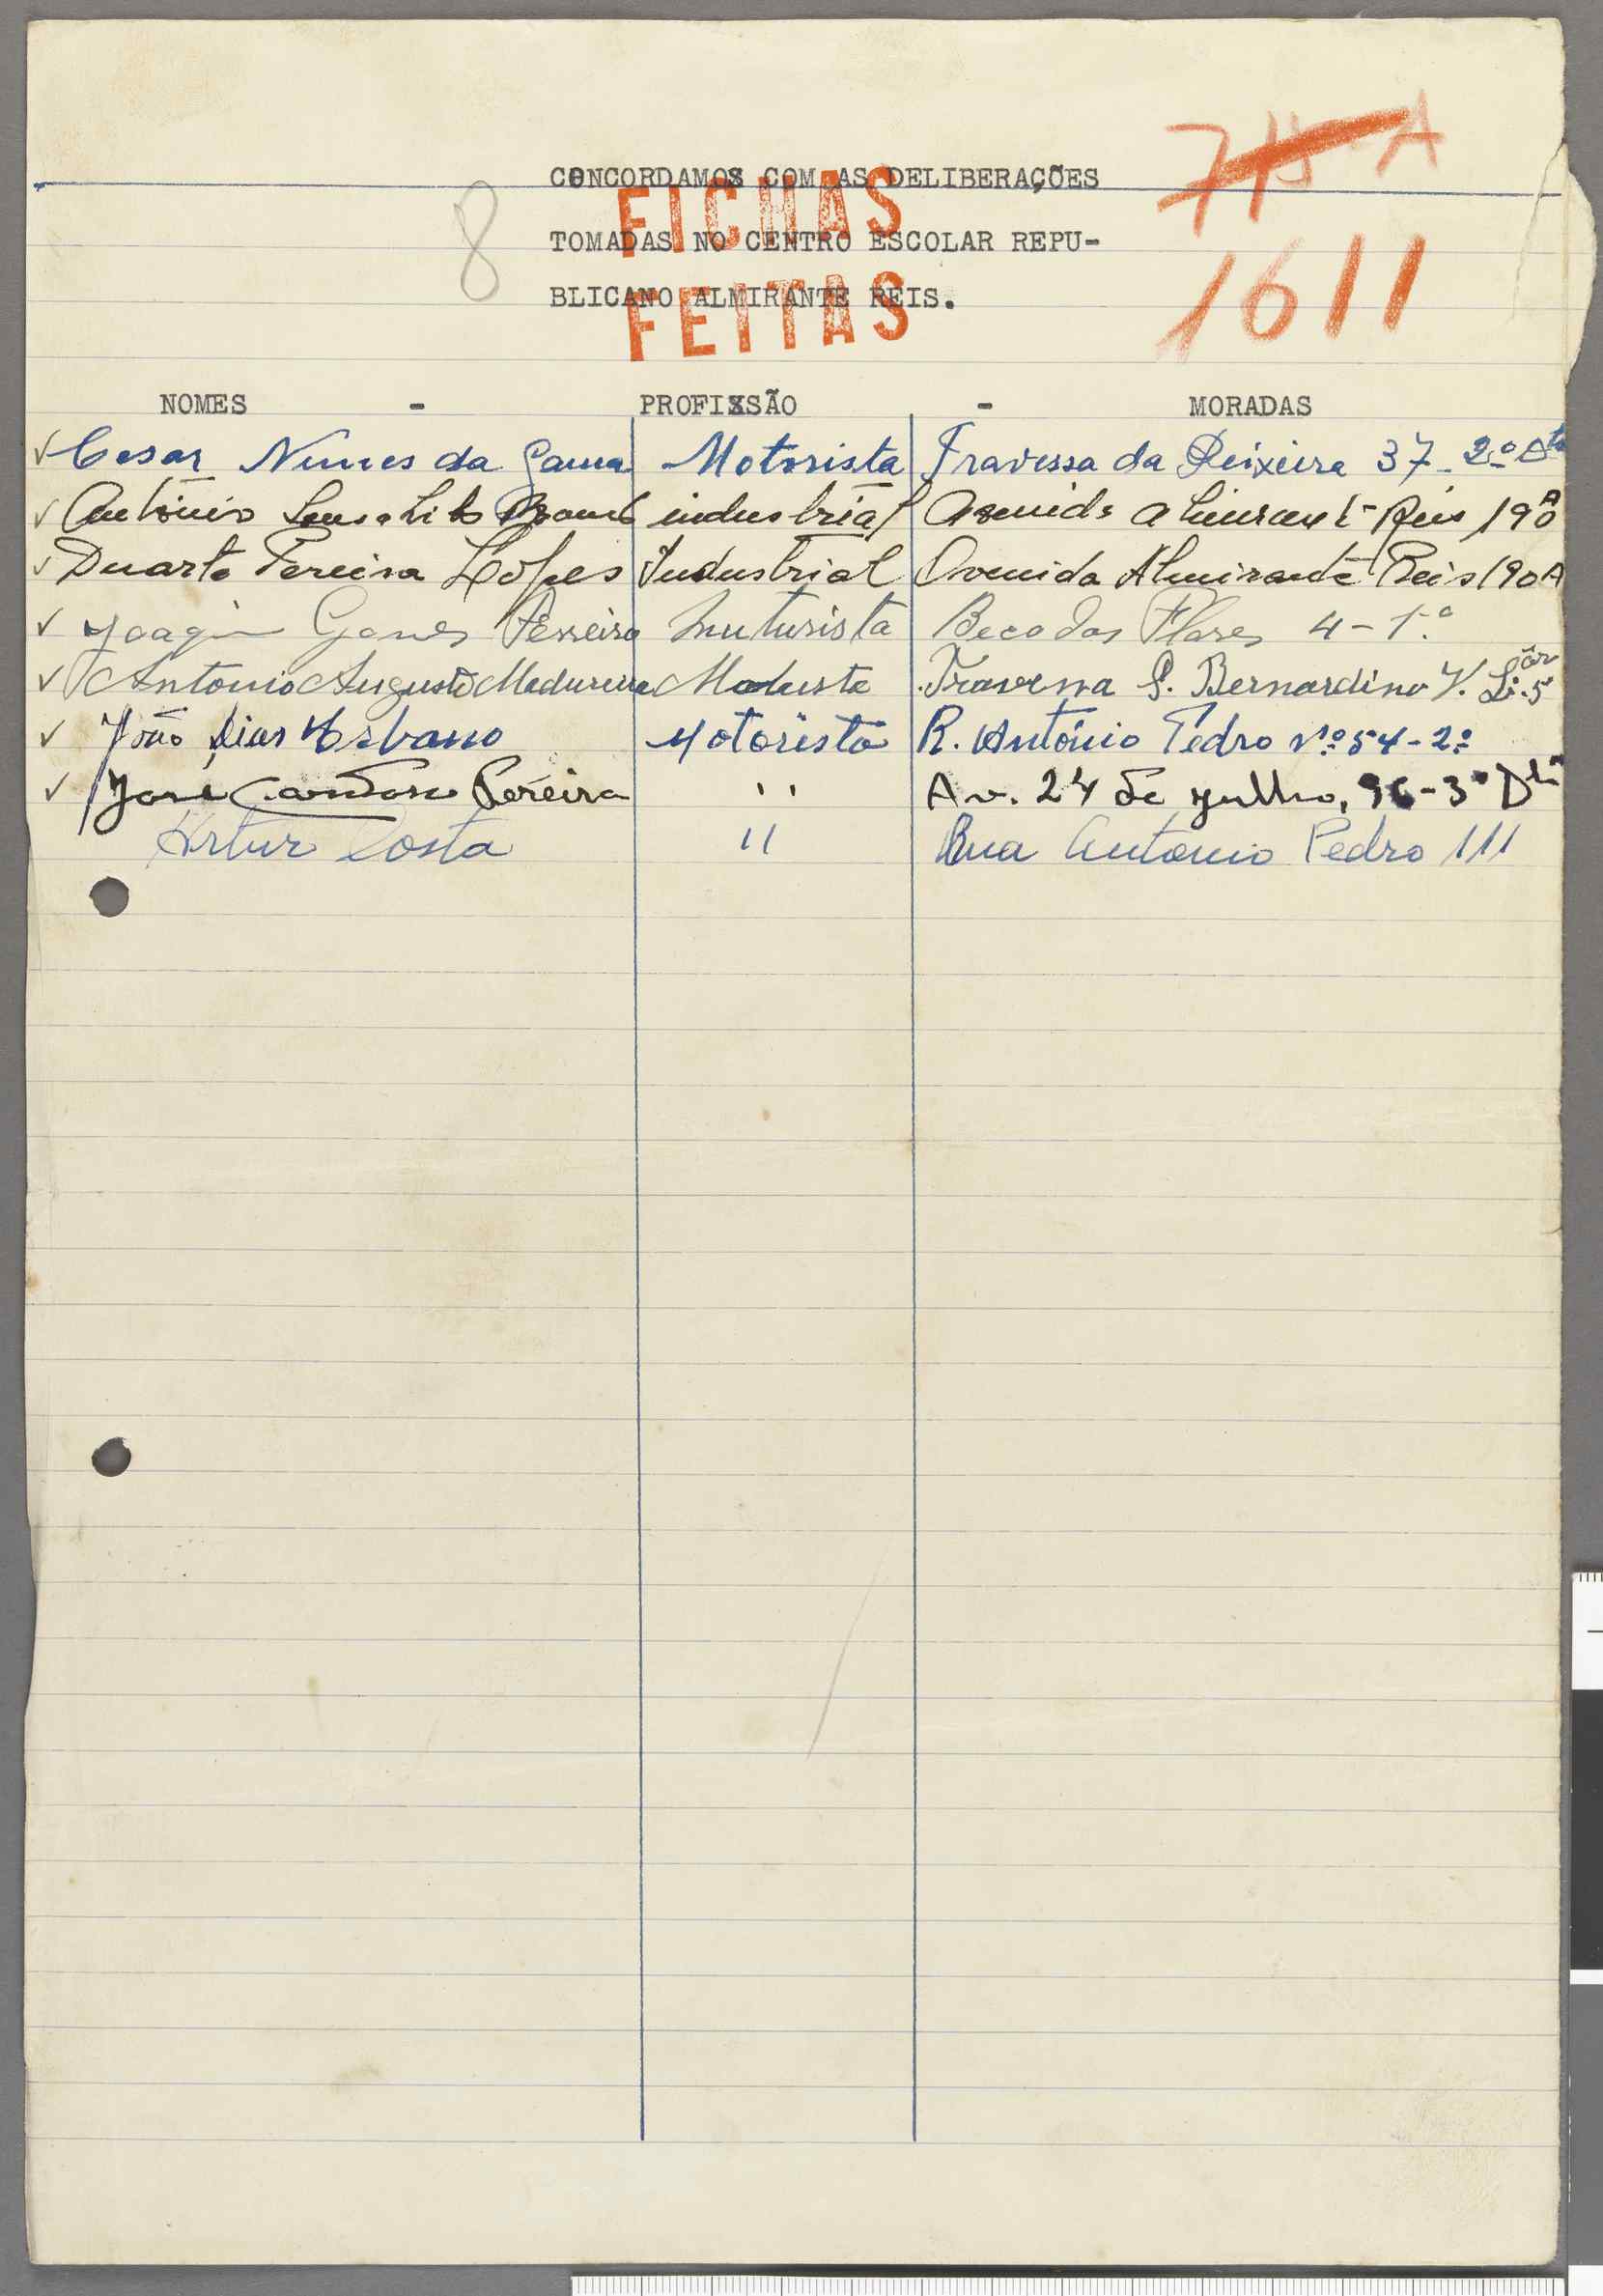 7 A
CONCORDAMOS COM AS DELIBERAÇÕES
FICHAS
8
TOMADAS NO CENTRO ESCOLAR REPU-
1611
BLICANO ALMIRANTE REIS.
FEITAS
NOMES - PROFISSÃO - MORADAS
Cesar Nunes da Gama Motorista Travessa da Peixeira 37-2º Dto
António industrial Avenida Almirante Reis 190 A
Duarte Pereira Lopes Industrial Avenida Almirante Reis 190 A
Joaqim Gomes Ferreira Muturista Beco das Flores 4-1.º
Antonio Augusto Madureira Travessa S. Bernardino V.
João Dias Urbano Motorista R. António Pedro Nº 54-2º
José Cardoso Pereira " Av. 24 de Julho, 96-3º Dto
Artur Costa " Rua Antonio Pedro 111